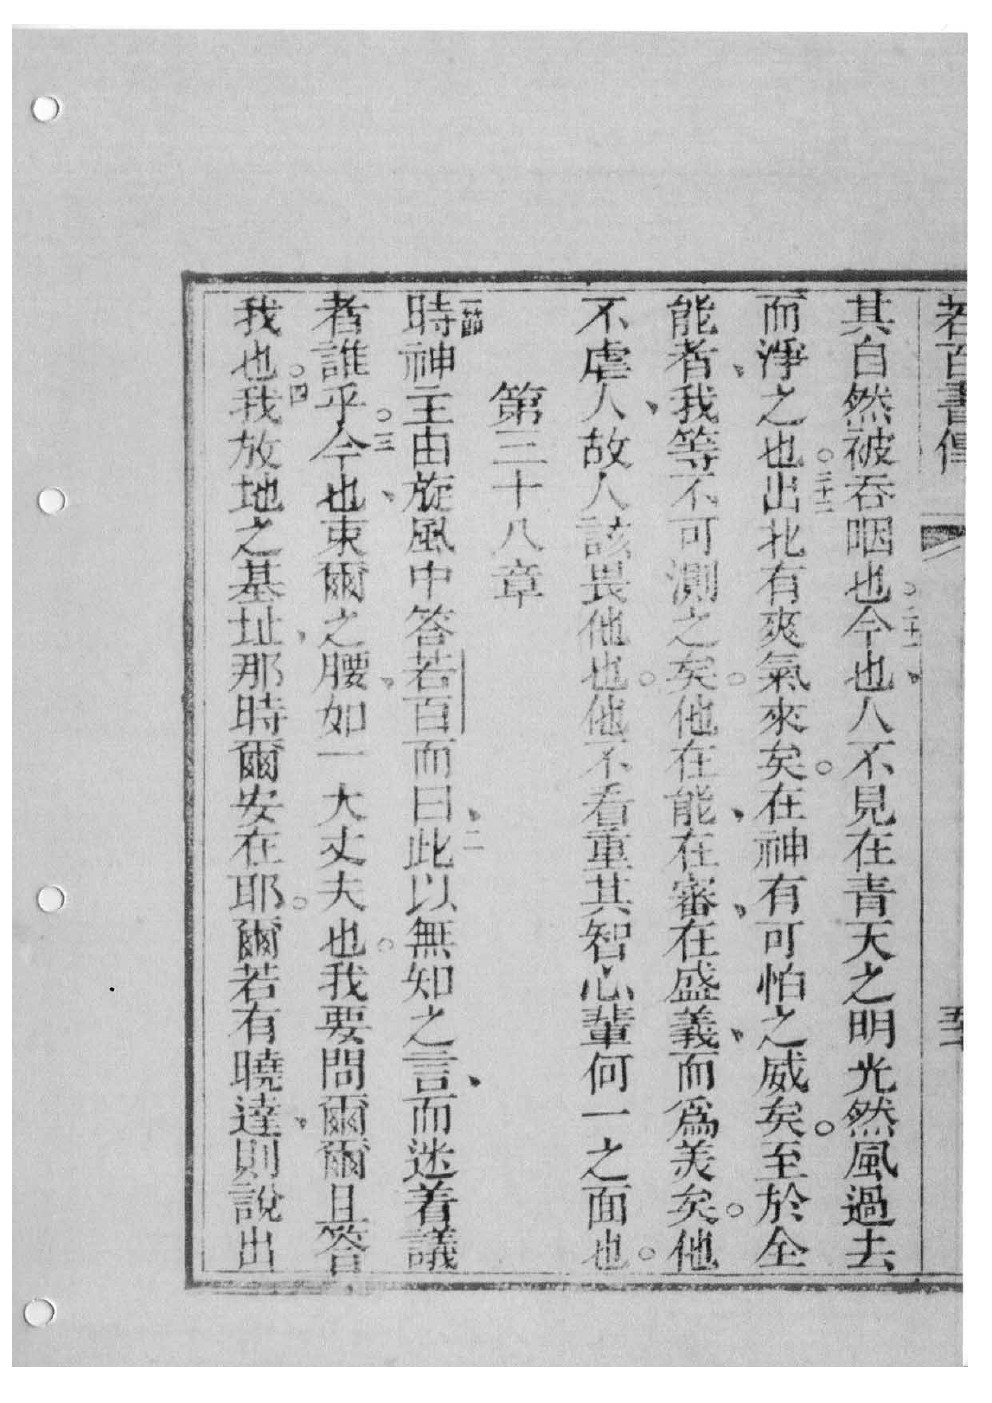 若百書傳
其自然被吞咽也。二十一今也、人不見在青天之明光然風過去
而淨之也。二十二出北有爽氣來矣。在神有可怕之威矣。至於全
能者、我等不可測之矣。他在能、在審、在盛義、而爲美矣。他
不虐人、故人該畏他也。他不看重其智心輩何一之面也。
第三十八章
一節時神主由旋風中答若百而曰、二此以無知之言、而迷着議
者誰乎。三今也、束爾之腰、如一大丈夫也。我要問爾爾且答
我也。四我放地之基址、那時爾安在耶。爾若有曉達、則說出